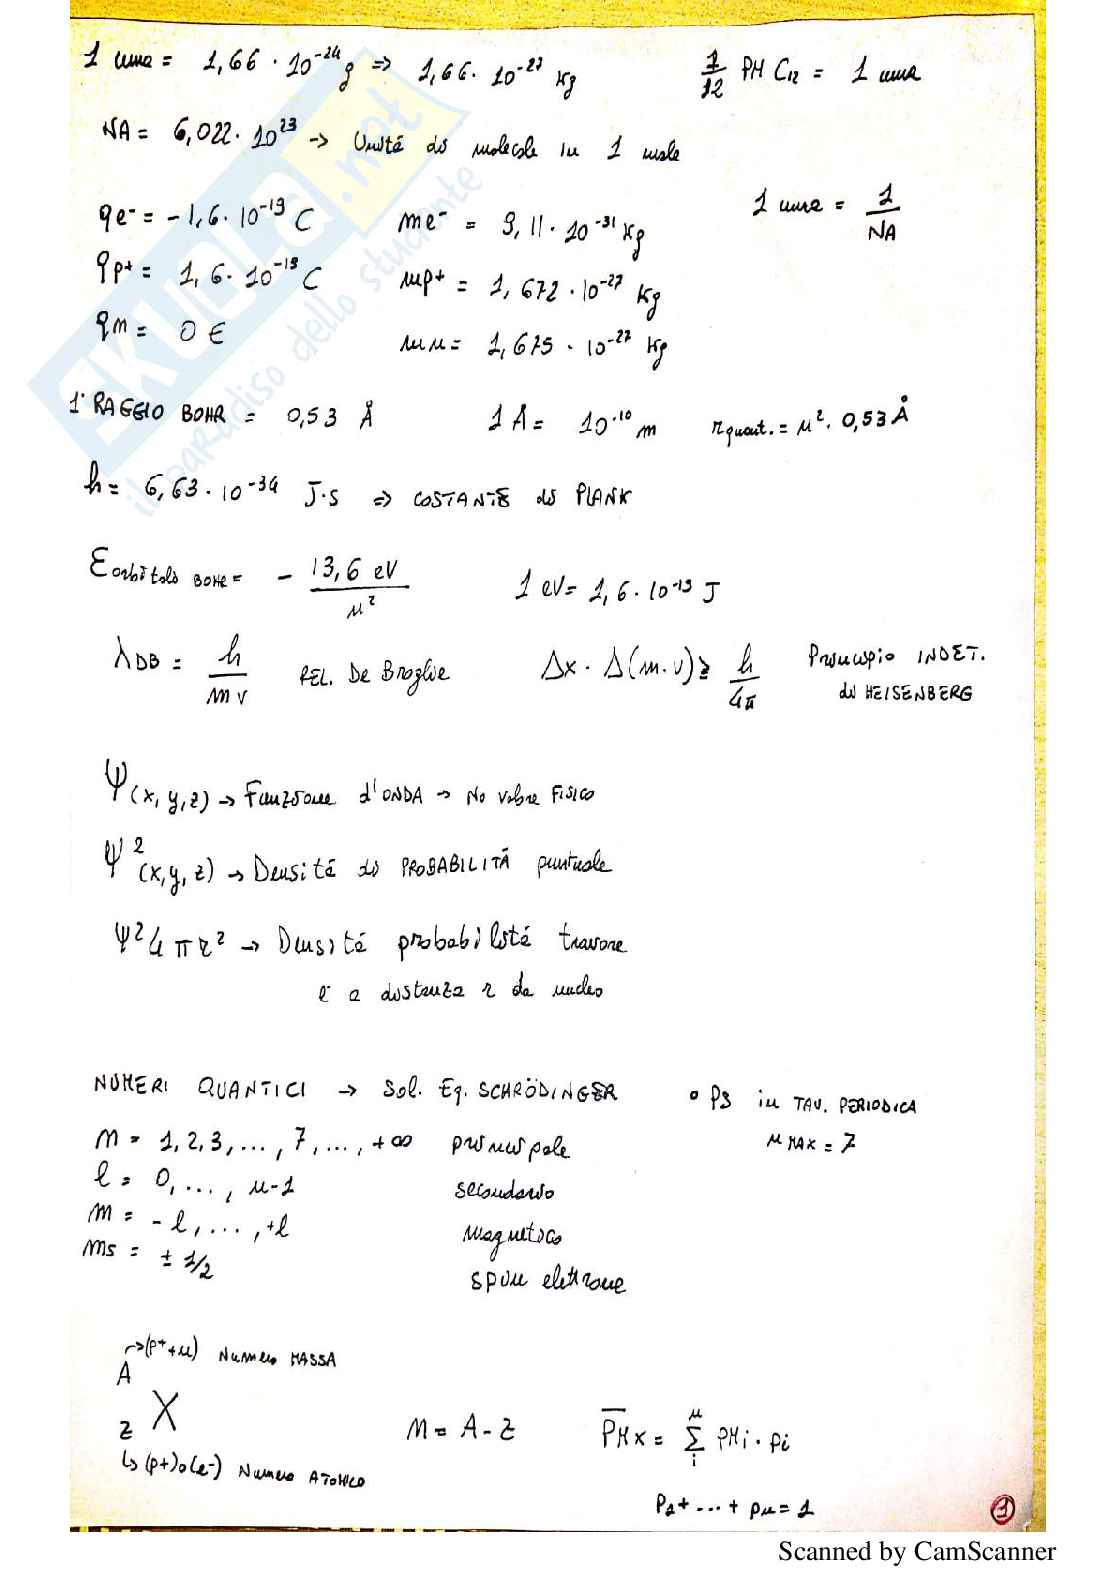 1 uma = 1,66 · 10⁻²⁴ g => 1,66 · 10⁻²⁷ kg   1/12 PM C₁₂ = 1 uma
NA = 6,022 · 10²³ -> Unità di molecole in 1 mole
1 uma = 1/NA
qe⁻ = -1,6 · 10⁻¹⁹ C   me⁻ = 9,11 · 10⁻³¹ kg
qp⁺ = 1,6 · 10⁻¹⁹ C   mp⁺ = 1,672 · 10⁻²⁷ kg
qn = 0 C   mn = 1,675 · 10⁻²⁷ kg
1° RAGGIO BOHR = 0,53 Å   1 Å = 10⁻¹⁰ m   r quant. = n² · 0,53 Å
h = 6,63 · 10⁻³⁴ J·s => COSTANTE di PLANK
E orbitale BOHR = - 13,6 eV / n²   1 eV = 1,6 · 10⁻¹⁹ J
λDB = h / mv   REL. De Broglie   Δx · Δ(m·v) ≥ h / 4π   Principio INDET.
di HEISENBERG
Ψ(x,y,z) -> Funzione d'ONDA -> No valore FISICO
Ψ²(x,y,z) -> Densità di PROBABILITÀ puntuale
Ψ² 4πr² -> Densità probabilità trovare
e⁻ a distanza r da nucleo
NUMERI QUANTICI -> Sol. Eq. SCHRÖDINGER   ° PS in TAV. PERIODICA
n MAX = 7
n = 1, 2, 3, ..., 7, ..., +∞   principale
l = 0, ..., n-1   secondario
m = -l, ..., +l   magnetico
ms = ± 1/2   spin elettrone
A -> (p⁺+n) Numero MASSA
X
Z
-> (p+) o (e⁻) Numero ATOMICO
n = A - Z   P̅M̅x = Σ PMi · pi
i   n
p₁ + ... + pn = 1
1
SKUOLA.net
il paradiso dello studente
Scanned by CamScanner